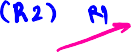 (R2) R1